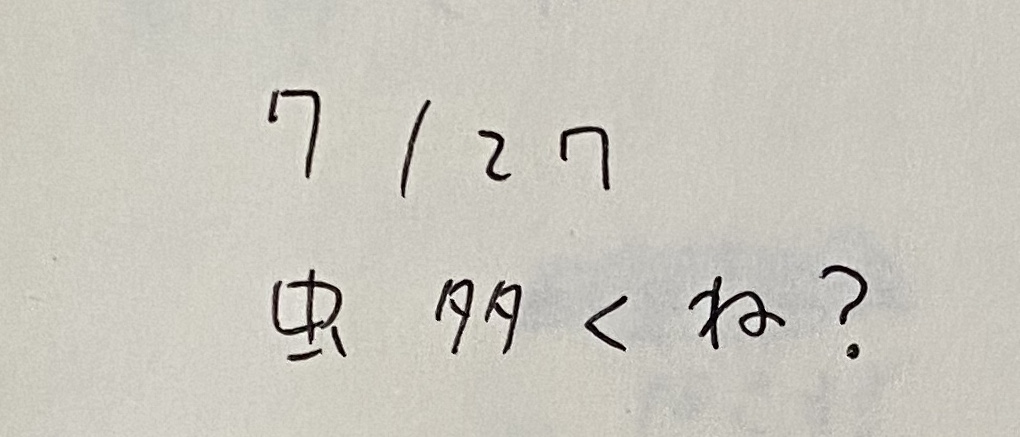 7/27
虫多くね?